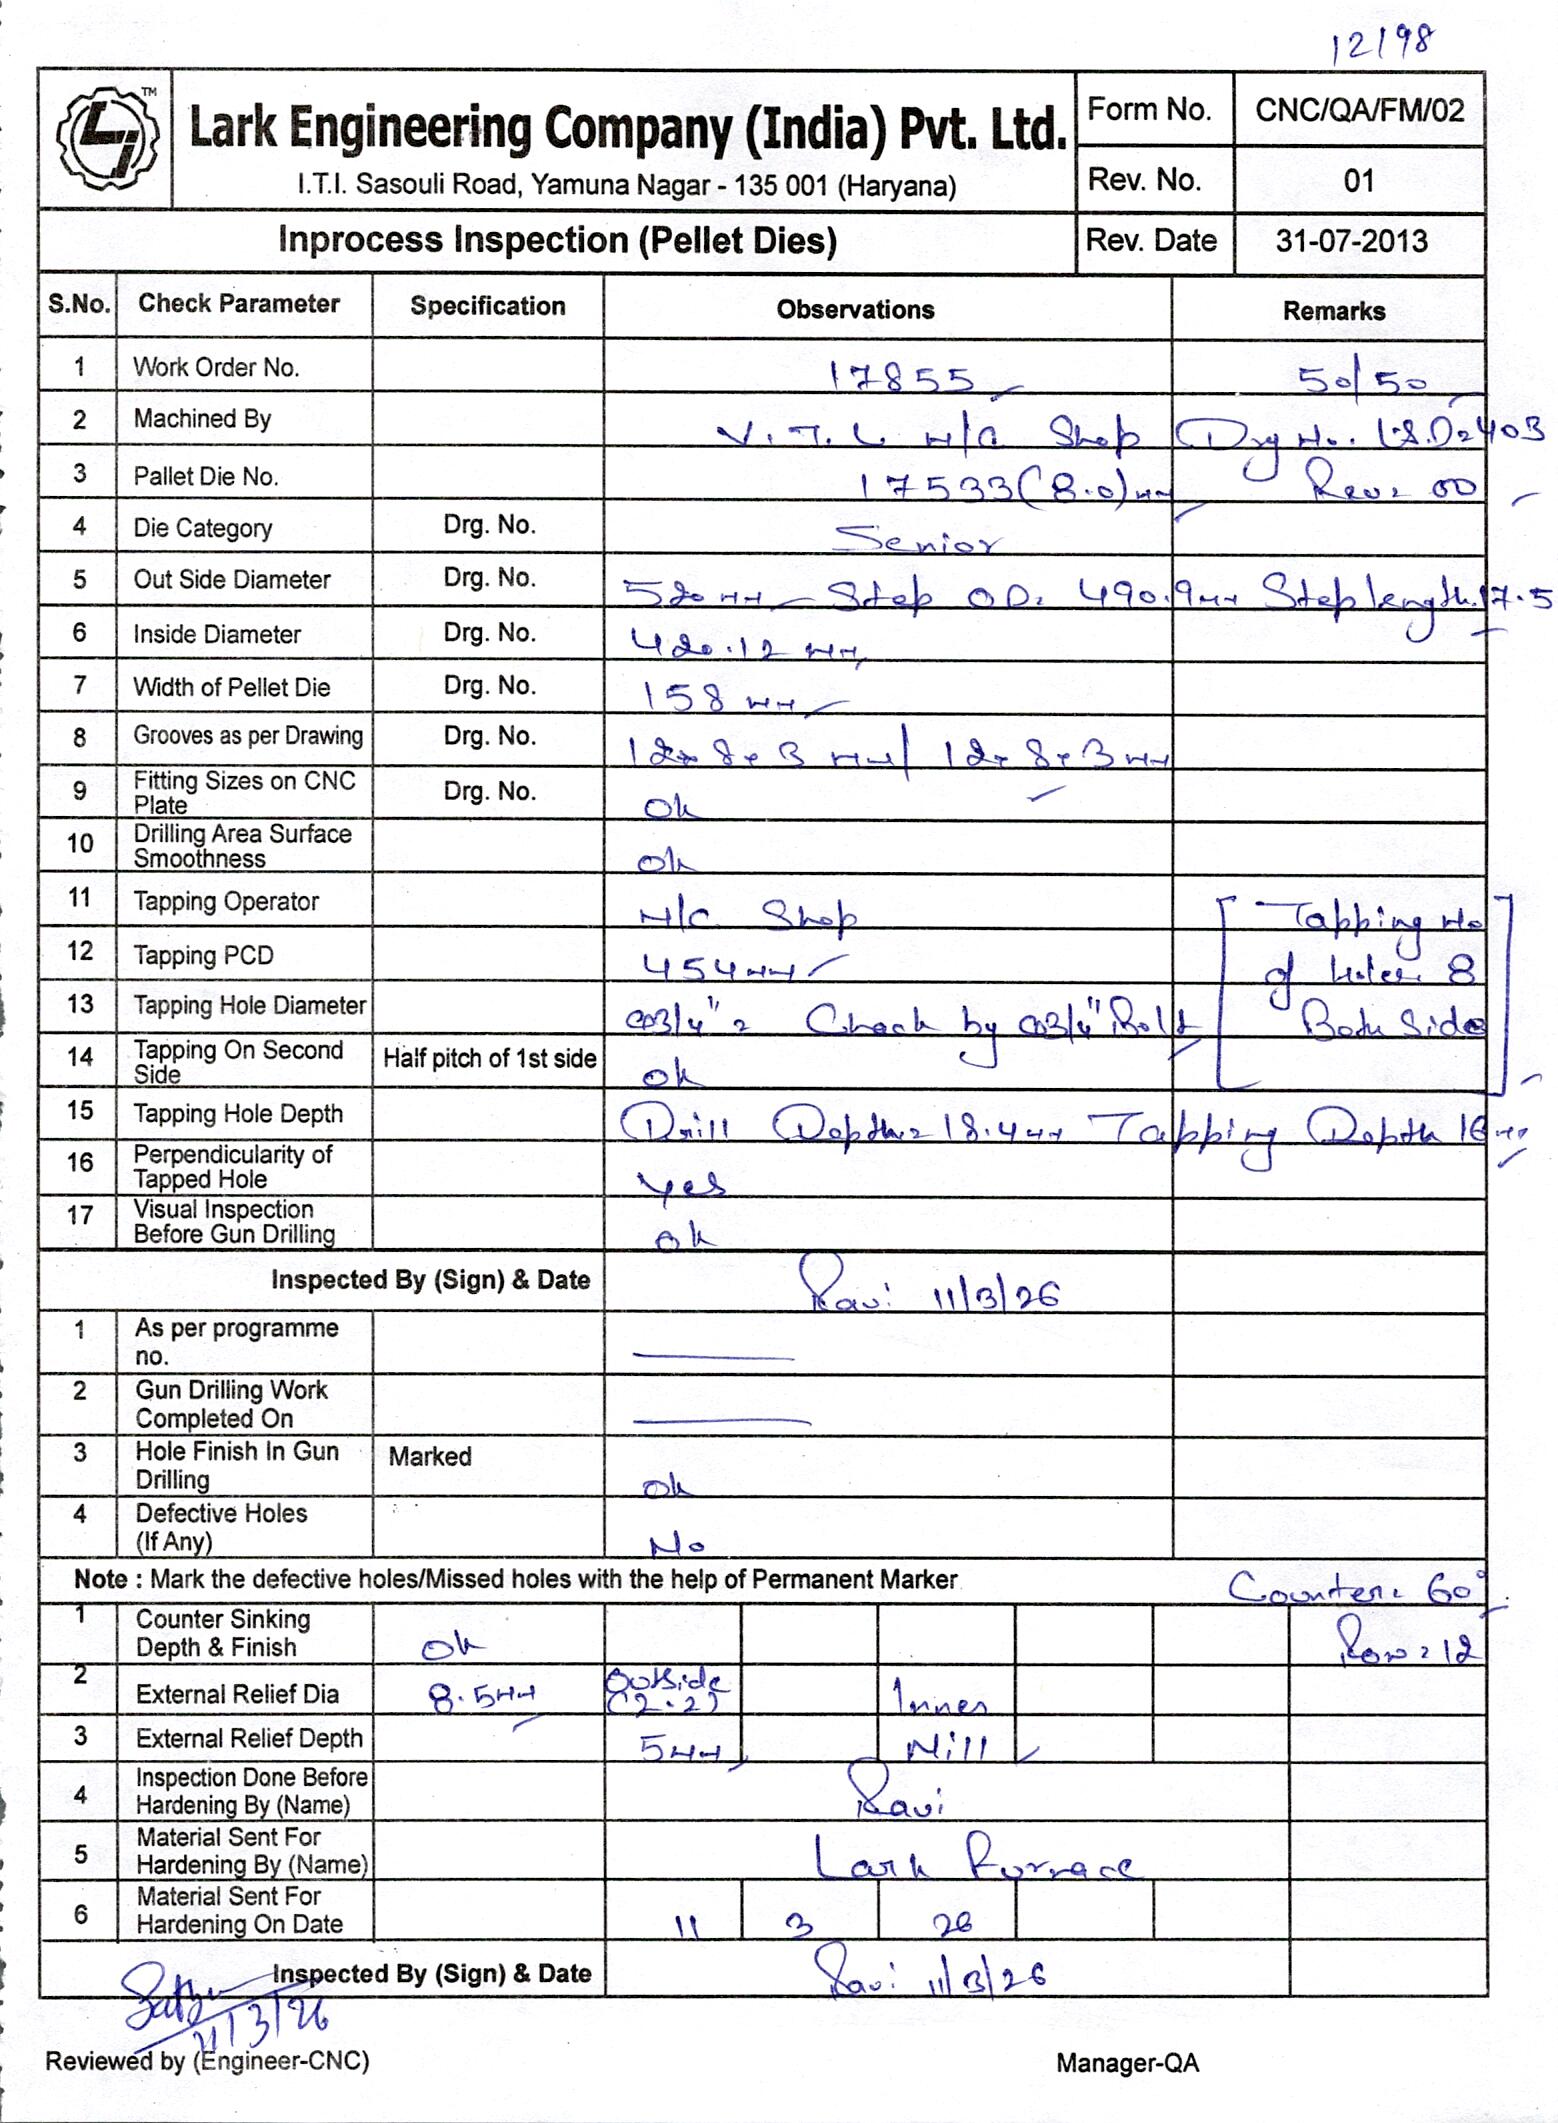 12198
TM
Lark Engineering Company (India) Pvt. Ltd.
I.T.I. Sasouli Road, Yamuna Nagar - 135 001 (Haryana)
Form No. CNC/QA/FM/02
Rev. No. 01
Inprocess Inspection (Pellet Dies) Rev. Date 31-07-2013
S.No. Check Parameter Specification Observations Remarks
1 Work Order No. 17855 50/50
2 Machined By V.T.L M/C Shop Drg No. LSD=403
3 Pallet Die No. 17533(8.0)mm Rev= 00
4 Die Category Drg. No. Senior
5 Out Side Diameter Drg. No. 520mm Step OD= 490.9mm Step length 17.5
6 Inside Diameter Drg. No. 420.12 mm
7 Width of Pellet Die Drg. No. 158 mm
8 Grooves as per Drawing Drg. No. 12x8x3 mm/ 12x8x3mm
9 Fitting Sizes on CNC Plate Drg. No. Ok
10 Drilling Area Surface Smoothness Ok
11 Tapping Operator M/C Shop Tapping No
12 Tapping PCD 454mm of holes 8
13 Tapping Hole Diameter 3/4" = Check by 3/4" Bolt Both Side
14 Tapping On Second Side Half pitch of 1st side Ok
15 Tapping Hole Depth Drill Depth= 18.4mm Tapping Depth 16mm
16 Perpendicularity of Tapped Hole Yes
17 Visual Inspection Before Gun Drilling Ok
Inspected By (Sign) & Date Ravi 11/3/26
1 As per programme no.
2 Gun Drilling Work Completed On
3 Hole Finish In Gun Drilling Marked Ok
4 Defective Holes (If Any) No
Note : Mark the defective holes/Missed holes with the help of Permanent Marker Counter= 60°
1 Counter Sinking Depth & Finish Ok Row=12
2 External Relief Dia 8.5mm Outside (2.2) Inner
3 External Relief Depth 5mm Nill
4 Inspection Done Before Hardening By (Name) Ravi
5 Material Sent For Hardening By (Name) Lark Furnace
6 Material Sent For Hardening On Date 11 3 26
Inspected By (Sign) & Date Ravi 11/3/26
11/3/26
Reviewed by (Engineer-CNC) Manager-QA